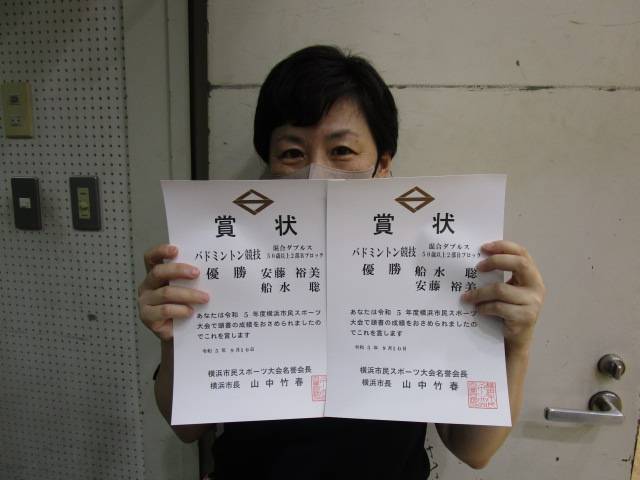 賞状
バドミントン競技 混合ダブルス
50歳以上2部Bブロック
優勝 安藤裕美
船水聡
あなたは令和5年度横浜市民スポーツ
大会で頭書の成績をおさめられましたの
でこれを賞します
令和5年9月10日
横浜市民スポーツ大会名誉会長
横浜市長 山中竹春
賞状
バドミントン競技 混合ダブルス
50歳以上2部Bブロック
優勝 船水聡
安藤裕美
あなたは令和5年度横浜市民スポーツ
大会で頭書の成績をおさめられましたの
でこれを賞します
令和5年9月10日
横浜市民スポーツ大会名誉会長
横浜市長 山中竹春